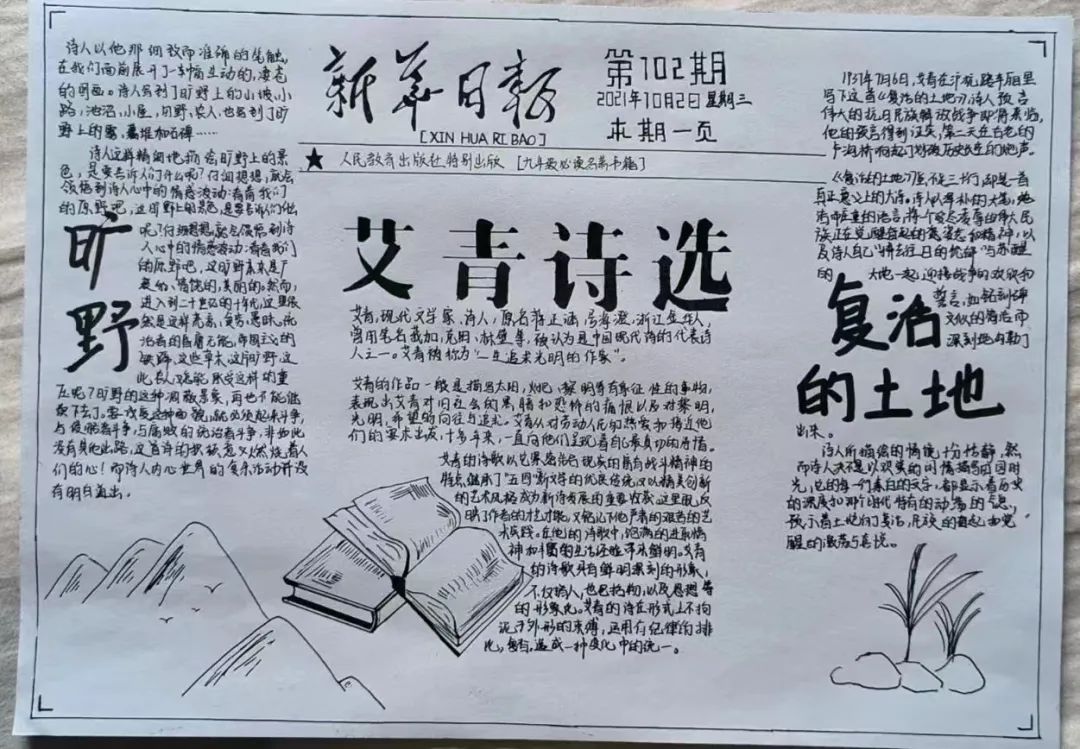 新华日报
[XIN HUA RI BAO]
第102期
2021年10月2日 星期三
本期一页
人民教育出版社 特别出版 [九年级必读名著书籍]
诗人以他那细致而准确的笔触,
在我们面前展开了一幅生动的,凄苍
的图画。诗人写到了旷野上的小坡,小
路,池沼,小屋,田野,农人,也写到了旷
野上的雾,
诗人这样精细地描绘旷野上的景
色,是要告诉人们什么呢?仔细想想,就会
领悟到诗人心中的情感波动:看着我们
的原野吧,这旷野上的景色,是要告诉人们什么
旷野
呢?仔细想想,就会领悟到诗
人心中的情感波动:看着我们
的原野吧,这旷野本来是广
美丽的。然而,
进入到二十世纪的十年代,这里依
然是这样荒凉,
这些草木,这片旷野,这
此农人,
旷野的这种凋敝景象,再也不能继
续下去了。要改变这种面貌,就必须起来斗争,
与侵略者斗争,与腐败的统治者斗争,非如此
没有其他出路,这首诗的积极意义燃烧着人
们的心!而诗人内心世界的复杂活动并没
有明白道出。
艾青诗选
艾青,现代文学家、诗人,原名蒋正涵,号海澄,浙江金华人,
曾用笔名莪加、克阿、林壁等,被认为是中国现代诗的代表诗
人之一。艾青被称为“一生追求光明的作家”。
艾青的作品一般是描写太阳,火把,黎明等有象征性的事物,
表现出艾青对旧社会的黑暗和恐怖的痛恨以及对黎明,
光明,希望的向往与追求。艾青从对劳动人民的热爱和接近他
们的要求出发,十多年来,一直向他们呈现着自己最真切的诗情。
艾青的诗歌以它紧密结合现实的富有战斗精神的
特点继承了“五四”新文学的优良传统,又以精美创新
的艺术风格成为新诗发展的重要收获。这里既反
映了作者的才艺才能,又铭记下他严肃的艰苦的艺
术实践。在他的诗歌中,饱满的进取精
神和丰富的生活经验带来鲜明。艾青
的诗歌具有鲜明深刻的形象,
不仅指人,也包括物,以及思想等
的形象化。艾青的诗在形式上不拘
泥于外形的束缚,运用有纪律的排
比,复沓,造成一种变化中的统一。
1937年7月6日,艾青在沪杭路车厢里
写下这首《复活的土地》,诗人预言
伟大的抗日民族解放战争即将来临,
他的预言得到证实,第二天在古老的
卢沟桥响起了划破历史长空的炮声。
《复活的土地》虽不长三十行,却是一首
真正意义上的大诗。诗人以
族正在觉醒奋起的姿态和精神,以
及诗人自己“拂去往日的忧郁”与苏醒
的大地一起,迎接战争的欢欣和
誓言,如铭刻碑
文似的简洁而
深刻地勾勒了
复活的土地
出来。
诗人所描绘的情境十分恬静,然
而诗人决不是以欢笑的闲情描写田园时
光,它的每一个素白的文字,都显示着历史
的深度和那个时代特有的动荡的气息,
预示着土地将了复活,民族的奋起和觉
醒的激荡与喜悦。